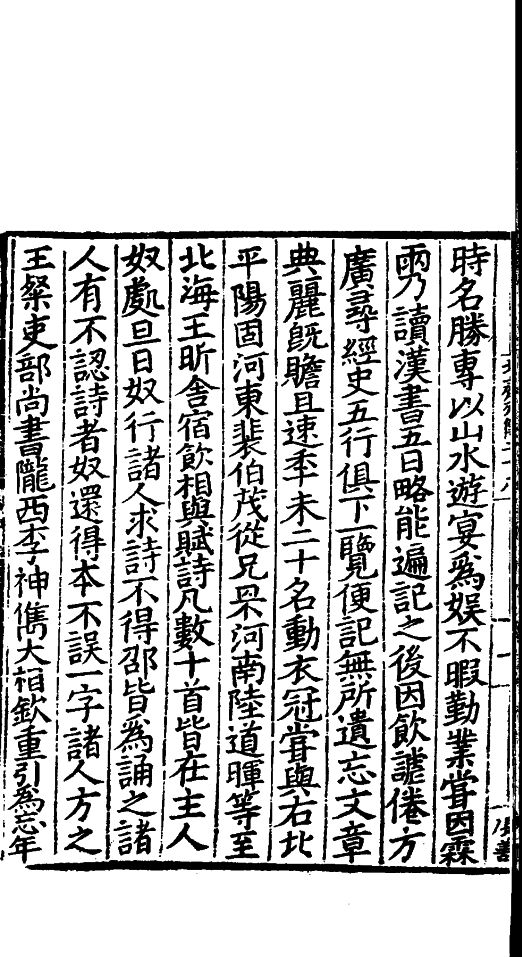 時名勝專以山水遊宴爲娱不暇勤業甞因霖
雨乃讀漢書五日略能遍記之後因飲謔倦方
廣尋經史五行俱下一覽便記無所遺忘文章
典麗旣贍且速年未二十名動衣冠甞與右北
平陽固河東裴伯茂從兄罘河南陸道暉等至
北海王昕舍宿飲相與賦詩凡數十首皆在主人
奴處旦日奴行諸人求詩不得邵皆爲誦之諸
人有不認詩者奴還得本不誤一字諸人方之
王粲吏部尚書隴西李神儁大相欽重引爲忘年